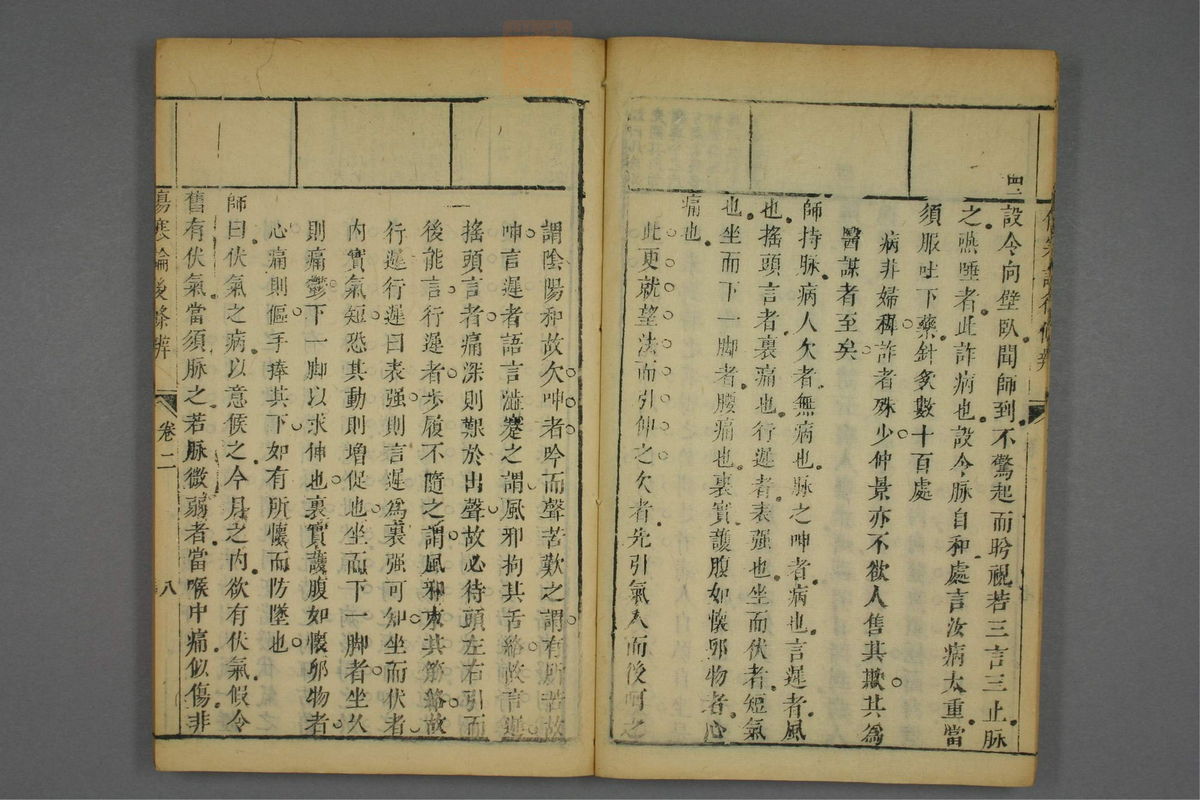 設令向壁臥聞師到不驚起而盻視若三言三止脉
之嚥唾者此詐病也設令脉自和處言汝病太重當
須服吐下藥針灸數十百處
病非婦稺詐者殊少仲景亦不欲人售其欺其為
醫謀者至矣
師持脉病人欠者無病也脉之呻者病也言遲者風
也搖頭言者裏痛也行遲者表强也坐而伏者短氣
也坐而下一脚者腰痛也裏實護腹如懷卵物者心
痛也
此更就望法而引伸之欠者先引氣入而後呵之
謂陰陽和故欠呻者吟而聲苦歎之謂有所苦故
呻言遲者語言澁蹇之謂風邪拘其舌絡故言遲
搖頭言者痛深則艱於出聲故必待頭左右引而
後能言行遲者步履不隨之謂風邪束其筋絡故
行遲行遲曰表强則言遲為裏强可知坐而伏者
內實氣短恐其動則增促也坐而下一脚者坐久
則痛鬱下一脚以求伸也裏實護腹如懷卵物者
心痛則傴手捧其下如有所懷而防墜也
師曰伏氣之病以意候之今月之內欲有伏氣假令
舊有伏氣當須脉之若脉微弱者當喉中痛似傷非
傷寒論後條辨 卷二 八